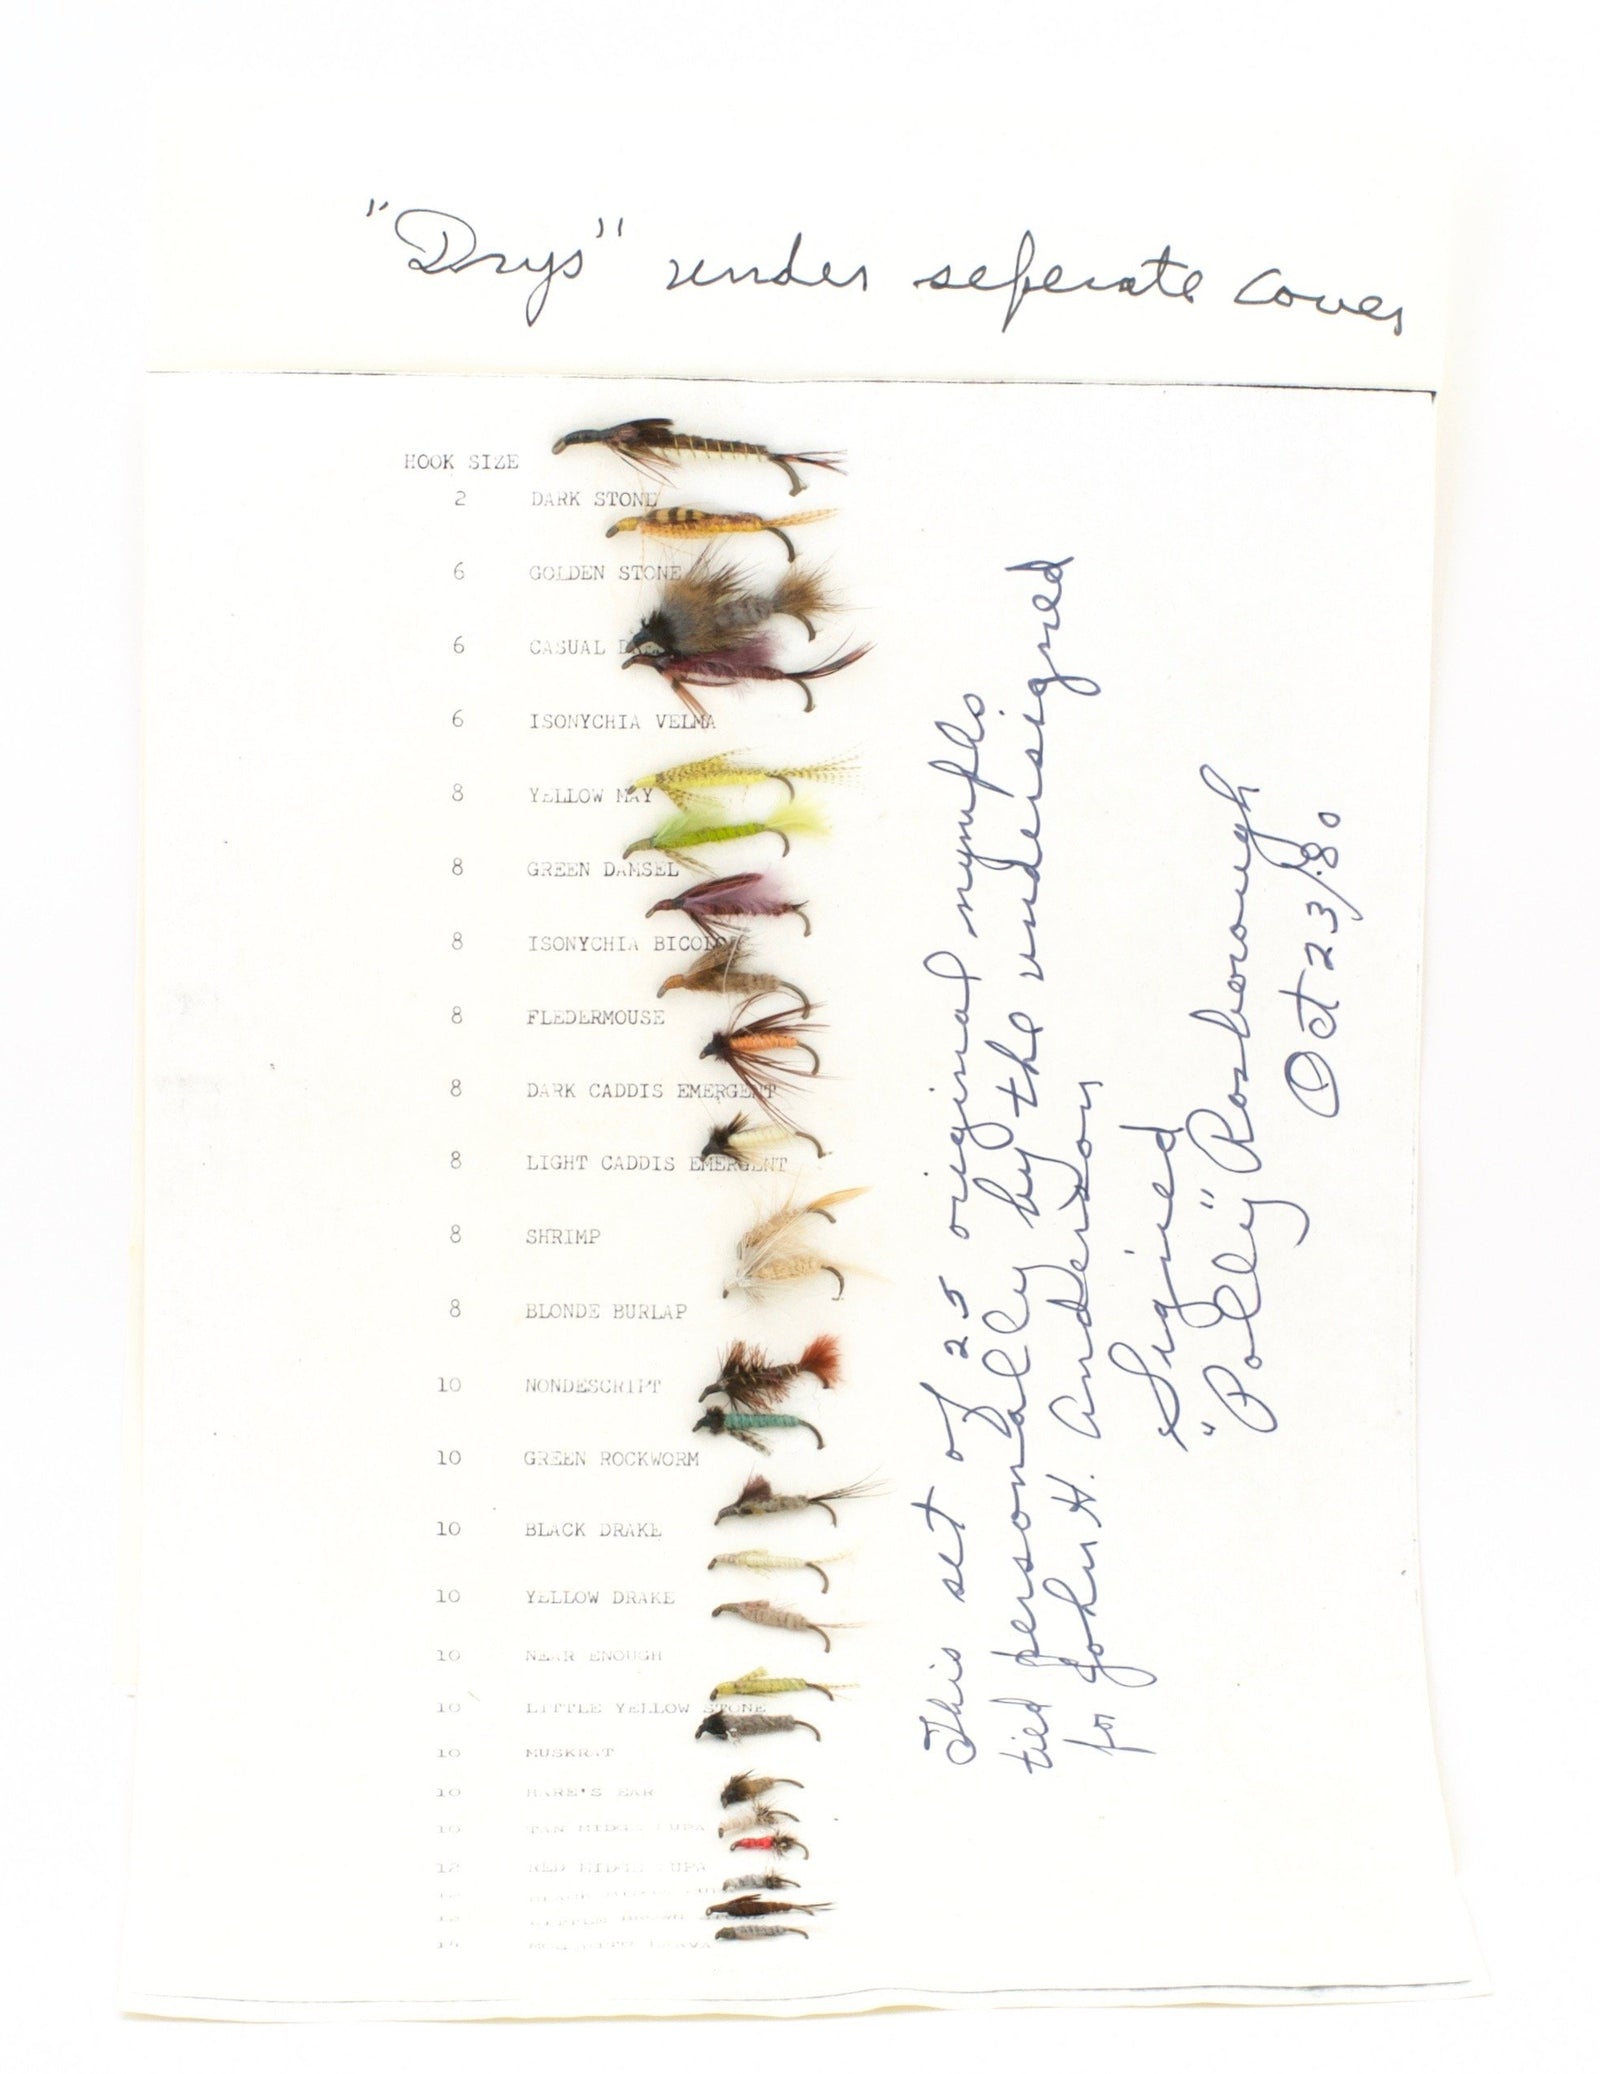 "Drys" under seperate cover
HOOK SIZE
2 DARK STONE
6 GOLDEN STONE
6 CASUAL DRESS
6 ISONYCHIA VELMA
8 YELLOW MAY
8 GREEN DAMSEL
8 ISONYCHIA BICOLOR
8 FLEDERMOUSE
8 DARK CADDIS EMERGENT
8 LIGHT CADDIS EMERGENT
8 SHRIMP
8 BLONDE BURLAP
10 NONDESCRIPT
10 GREEN ROCKWORM
10 BLACK DRAKE
10 YELLOW DRAKE
10 NEAR ENOUGH
10 LITTLE YELLOW STONE
10 MUSKRAT
10 HARE'S EAR
10 TAN MIDGE PUPA
12 RED MIDGE PUPA
12 BLACK MIDGE PUPA
12 LITTLE BROWN STONE
MOSQUITO LARVA
This set of 25 original nymphs
tied personally by the undersigned
for John H. Anderson
Signed
"Polly" Rosborough
Oct 23/.80